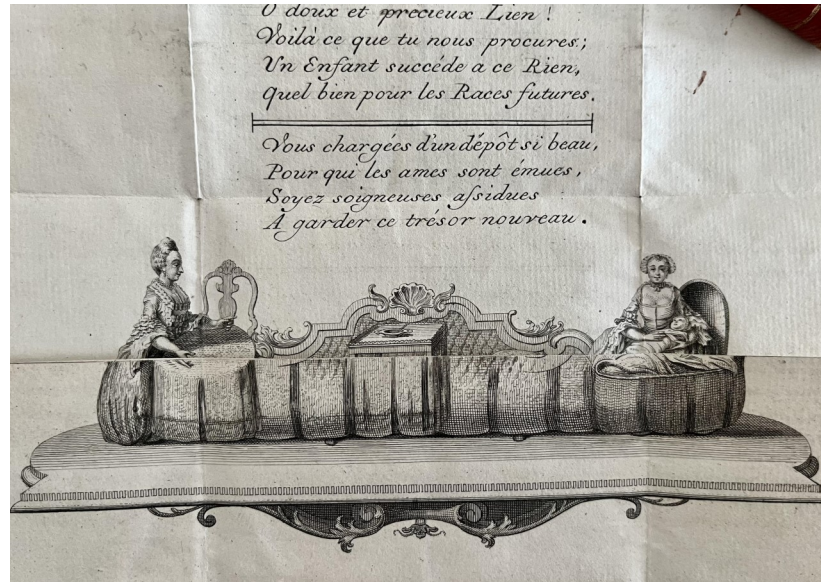 O doux et precieux Lien !
Voilà ce que tu nous procures ;
Un Enfant succéde a ce Rien,
quel bien pour les Races futures.
Vous chargées d'un dépôt si beau,
Pour qui les ames sont émues,
Soyez soigneuses assidues
A garder ce trésor nouveau.